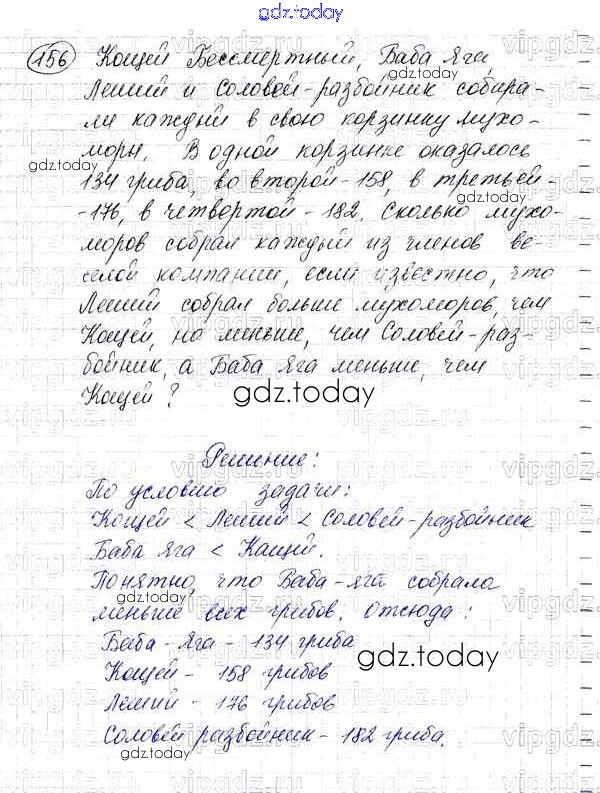 gdz.today
156 Кощей Бессмертный, Баба Яга,
gdz.today
Леший и Соловей-разбойник собира-
ли каждый в свою корзинку мухо-
моры. В одной корзинке оказалось
gdz.today
134 гриба, во второй-158, в третьей-
-176, в четвертой-182. Сколько мухо-
моров собрал каждый из членов ве-
селой компании, если известно, что
Леший собрал больше мухоморов, чем
Кощей, но меньше, чем Соловей-раз-
бойник, а Баба Яга меньше, чем
Кощей?
gdz.today
Решение:
По условию задачи:
Кощей < Леший < Соловей-разбойник
Баба Яга < Кащей.
Понятно, что Баба-яга собрала
gdz.today
меньше всех грибов. Отсюда:
Баба-Яга - 134 гриба
gdz.today
Кощей - 158 грибов
Леший - 176 грибов
Соловей разбойник - 182 гриба.
gdz.today